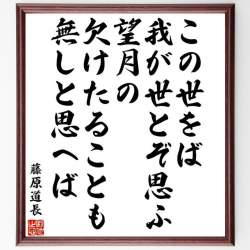 この世をば
我が世とぞ思ふ
望月の
欠けたることも
無しと思へば
藤原道長